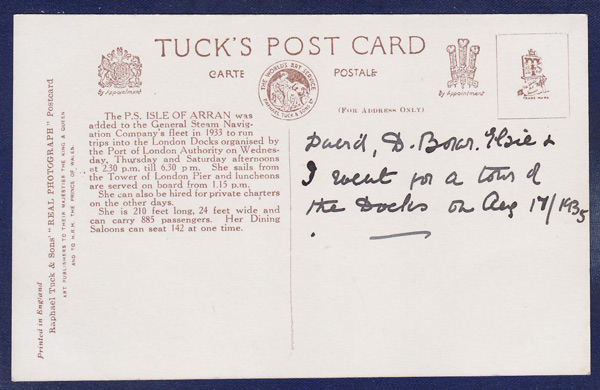 TUCK'S POST CARD
CARTE POSTALE
By Appointment
THE WORLD'S ART SERVICE
RAPHAEL TUCK & SONS LTD
By Appointment
TRADE MARK
(FOR ADDRESS ONLY)
The P.S. ISLE OF ARRAN was
added to the General Steam Navig-
ation Company's fleet in 1933 to run
trips into the London Docks organised by
the Port of London Authority on Wednes-
day, Thursday and Saturday afternoons
at 2.30 p.m. till 6.30 p.m. She sails from
the Tower of London Pier and luncheons
are served on board from 1.15 p.m.
She can also be hired for private charters
on the other days.
She is 210 feet long, 24 feet wide and
can carry 885 passengers. Her Dining
Saloons can seat 142 at one time.
David, D. Elsie &
I went for a tour of
the Docks on Aug 17/1935
Printed in England
Raphael Tuck & Sons' "REAL PHOTOGRAPH" Postcard
ART PUBLISHERS TO THEIR MAJESTIES THE KING & QUEEN
AND TO H.R.H. THE PRINCE OF WALES.